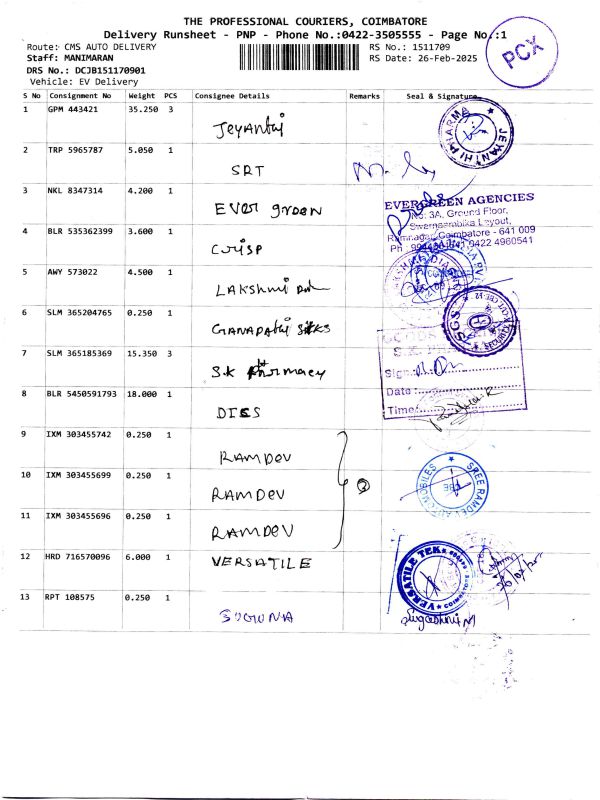 THE PROFESSIONAL COURIERS, COIMBATORE
Delivery Runsheet - PNP - Phone No.:0422-3505555 - Page No.:1
Route: CMS AUTO DELIVERY
RS No.: 1511709
Staff: MANIMARAN
RS Date: 26-Feb-2025
DRS No.: DCJB151170901
Vehicle: EV Delivery
PCX
S No Consignment No Weight PCS Consignee Details Remarks Seal & Signature
1 GPM 443421 35.250 3 Jeyanthi
JEYANTHI PHARMA
2 TRP 5965787 5.050 1 SRT
3 NKL 8347314 4.200 1 EVER green
EVERGREEN AGENCIES
No: 3A, Ground Floor,
Swarnaambika Layout,
Ramnagar, Coimbatore - 641 009
0422 4960541
4 BLR 535362399 3.600 1 Crisp
5 AWY 573022 4.500 1 LAKSHMI
6 SLM 365204765 0.250 1 GANAPATHI SILKS
SGS
7 SLM 365185369 15.350 3 S.K Pharmacy
Sign:
Date:
Time:
8 BLR 5450591793 18.000 1 DTES
9 IXM 303455742 0.250 1 RAMDEV
10 IXM 303455699 0.250 1 RAMDEV
SREE RAMDEV AUTOMOBILES
CBE
11 IXM 303455696 0.250 1 RAMDEV
12 HRD 716570096 6.000 1 VERSATILE
VERSATILE TEK
COIMBATORE
13 RPT 108575 0.250 1 SUGUNA